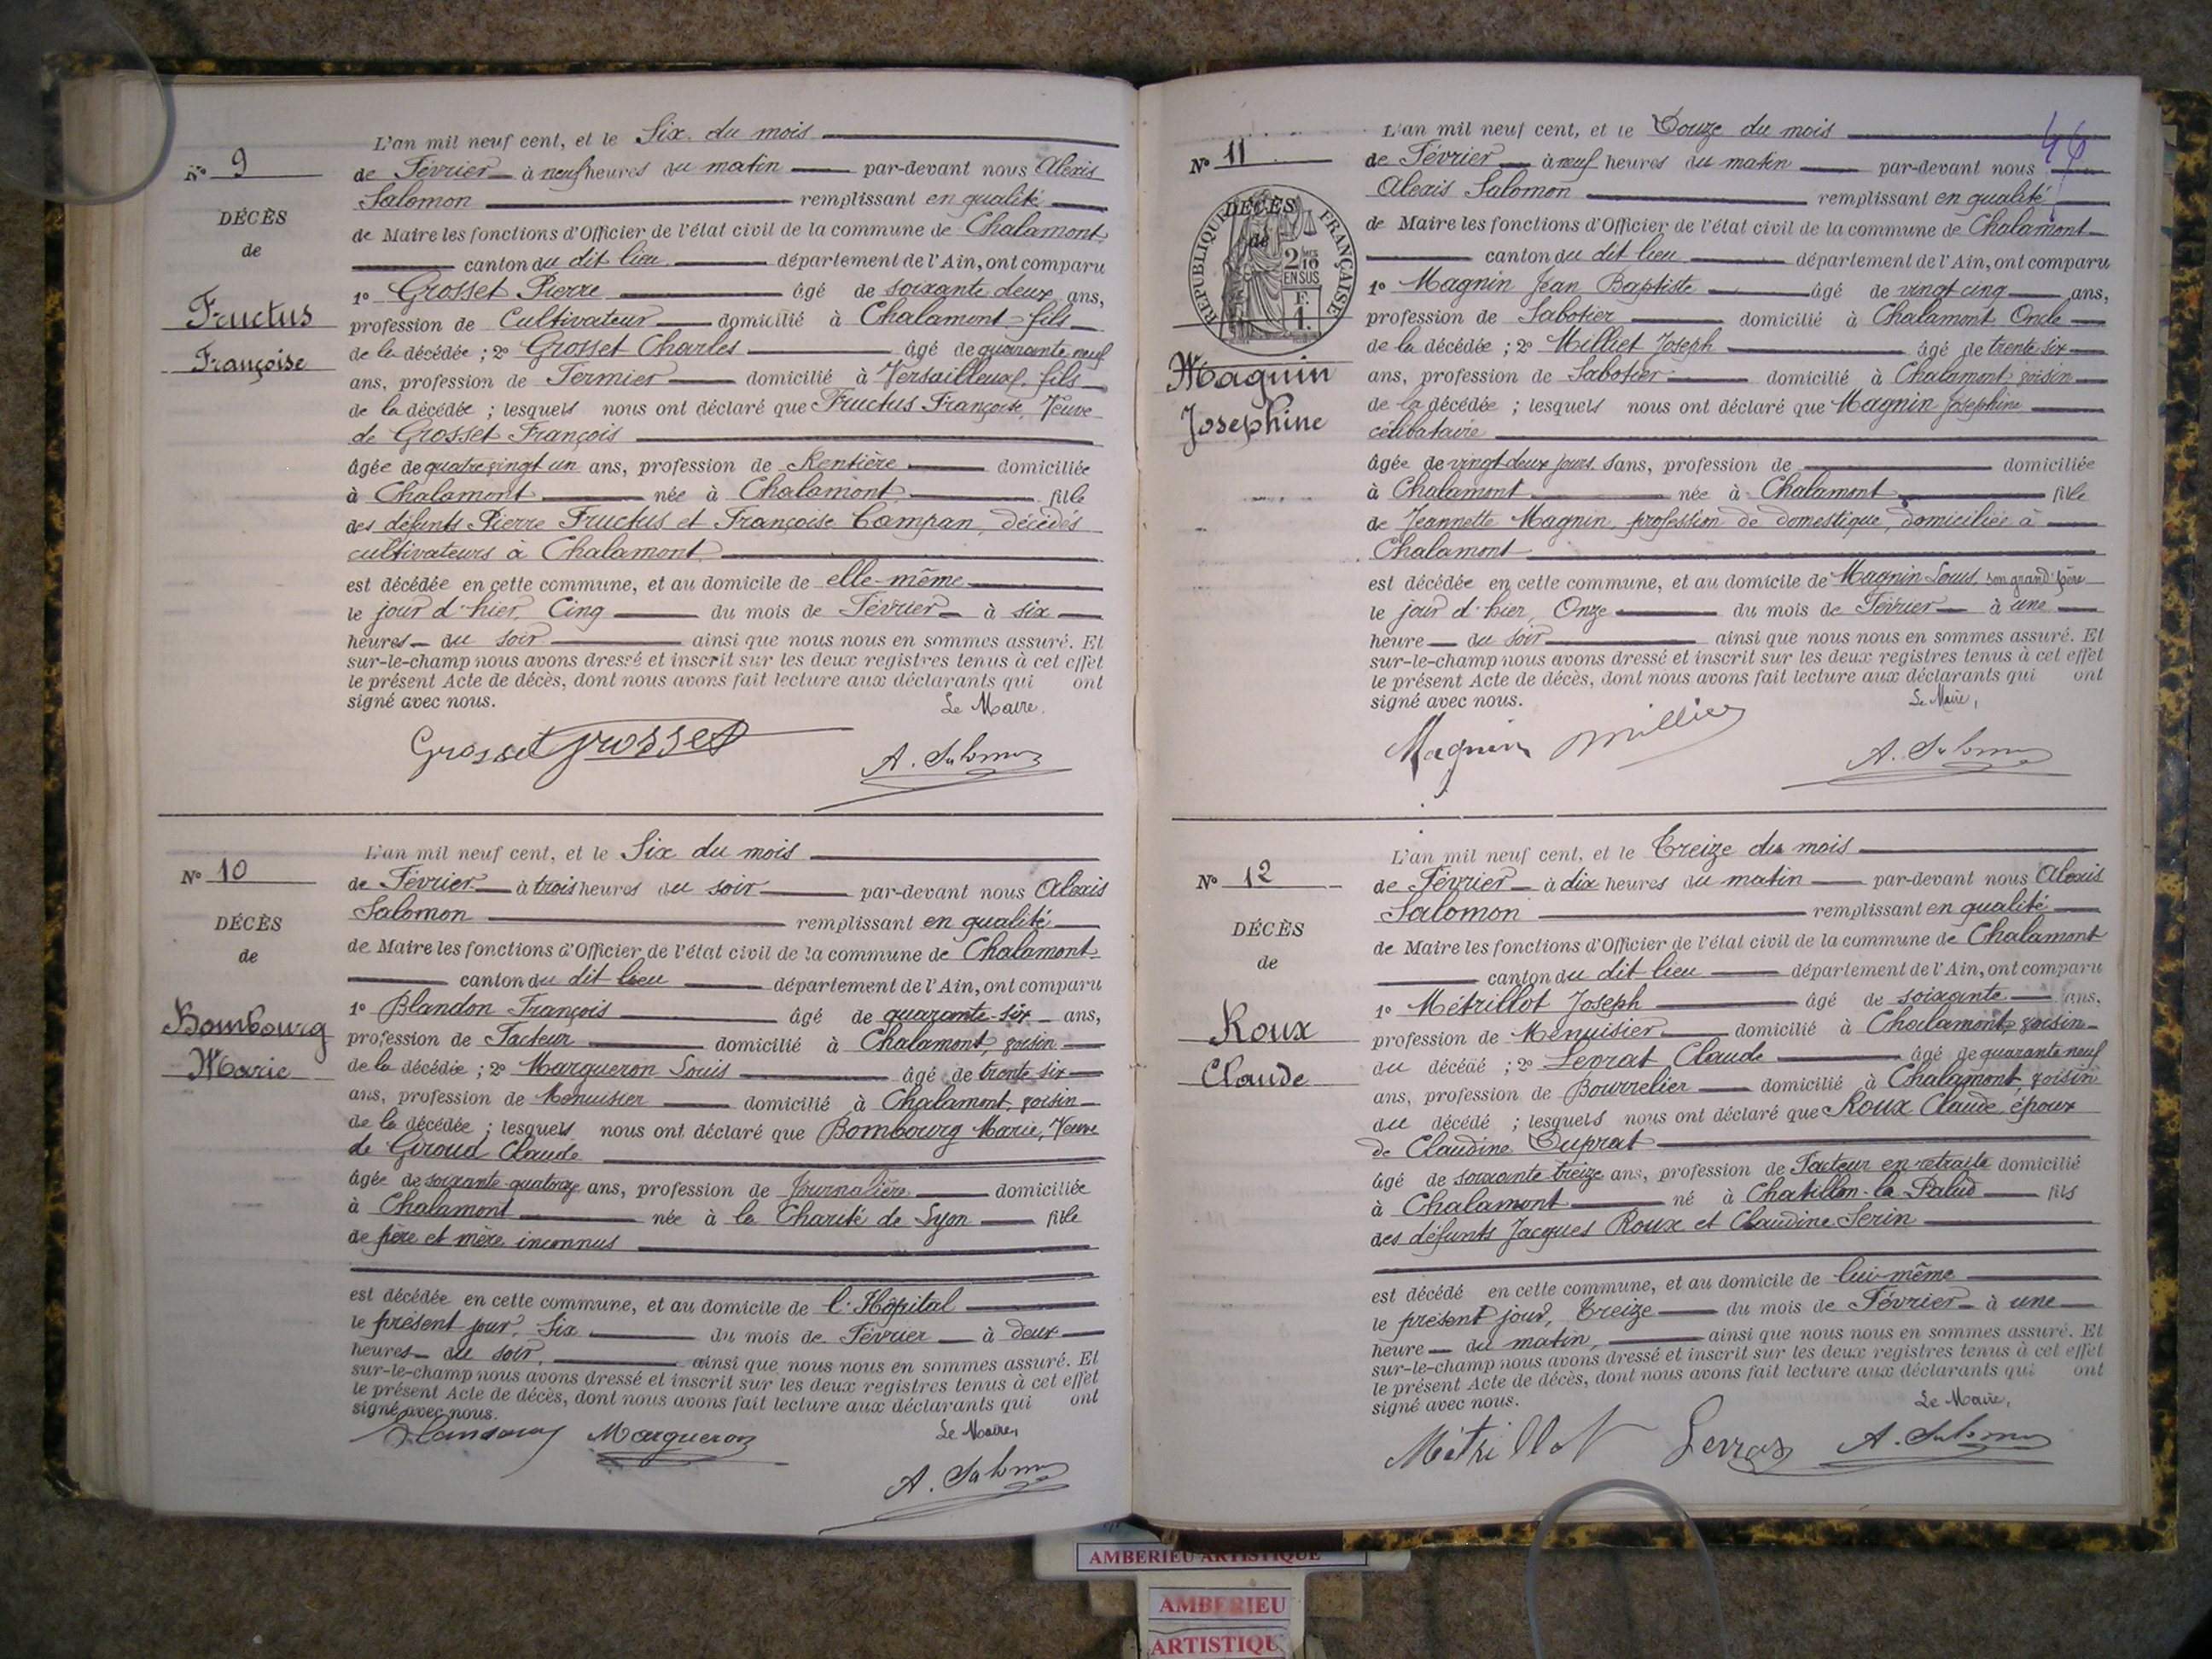 N° 9
DÉCÈS
de
Fructus
Françoise
L'an mil neuf cent, et le Six du mois
de Février à neuf heures du matin par-devant nous Alexis
Salomon remplissant en qualité
de Maire les fonctions d'Officier de l'état civil de la commune de Chalamont
canton du dit lieu département de l'Ain, ont comparu
1° Grosset Pierre âgé de soixante deux ans,
profession de Cultivateur domicilié à Chalamont fils
de la décédée ; 2° Grosset Charles âgé de quarante neuf
ans, profession de Fermier domicilié à Versailleux, fils
de la décédée ; lesquels nous ont déclaré que Fructus Françoise, Veuve
de Grosset François
âgée de quatre vingt un ans, profession de Rentière domiciliée
à Chalamont née à Chalamont fille
des défunts Pierre Fructus et Françoise Campan, décédés
cultivateurs à Chalamont
est décédée en cette commune, et au domicile de elle-même
le jour d'hier, Cinq du mois de Février à six
heures du soir ainsi que nous nous en sommes assuré. Et
sur-le-champ nous avons dressé et inscrit sur les deux registres tenus à cet effet
le présent Acte de décès, dont nous avons fait lecture aux déclarants qui ont
signé avec nous. Le Maire.
Grosset Grosset A. Salomon
N° 10
DÉCÈS
de
Bombourg
Marie
L'an mil neuf cent, et le Six du mois
de Février à trois heures du soir par-devant nous Alexis
Salomon remplissant en qualité
de Maire les fonctions d'Officier de l'état civil de la commune de Chalamont
canton du dit lieu département de l'Ain, ont comparu
1° Blandon François âgé de quarante-six ans,
profession de Facteur domicilié à Chalamont, voisin
de la décédée ; 2° Margueron Louis âgé de trente six
ans, profession de Menuisier domicilié à Chalamont, voisin
de la décédée ; lesquels nous ont déclaré que Bombourg Marie, Veuve
de Giroud Claude
âgée de soixante quatorze ans, profession de Journalière domiciliée
à Chalamont née à la Charité de Lyon fille
de père et mère inconnus
est décédée en cette commune, et au domicile de l'Hôpital
le présent jour, Six du mois de Février à deux
heures du soir, ainsi que nous nous en sommes assuré. Et
sur-le-champ nous avons dressé et inscrit sur les deux registres tenus à cet effet
le présent Acte de décès, dont nous avons fait lecture aux déclarants qui ont
signé avec nous. Le Maire,
Margueron
A. Salomon
46
N° 11
DÉCÈS
de
RÉPUBLIQUE FRANÇAISE
2/10
EN SUS
F.
1.
Magnin
Josephine
L'an mil neuf cent, et le Douze du mois
de Février à neuf heures du matin par-devant nous
Alexis Salomon remplissant en qualité
de Maire les fonctions d'Officier de l'état civil de la commune de Chalamont
canton du dit lieu département de l'Ain, ont comparu
1° Magnin Jean Baptiste âgé de vingt cinq ans,
profession de Sabotier domicilié à Chalamont Oncle
de la décédée ; 2° Milliet Joseph âgé de trente six
ans, profession de Sabotier domicilié à Chalamont, voisin
de la décédée ; lesquels nous ont déclaré que Magnin Josephine
célibataire
âgée de vingt deux jours sans, profession de domiciliée
à Chalamont née à Chalamont fille
de Jeannette Magnin, profession de domestique, domiciliée à
Chalamont
est décédée en cette commune, et au domicile de Magnin Louis, son grand'père
le jour d'hier, Onze du mois de Février à une
heure du soir ainsi que nous nous en sommes assuré. Et
sur-le-champ nous avons dressé et inscrit sur les deux registres tenus à cet effet
le présent Acte de décès, dont nous avons fait lecture aux déclarants qui ont
signé avec nous. Le Maire,
Magnin A. Salomon
N° 12
DÉCÈS
de
Roux
Claude
L'an mil neuf cent, et le Treize du mois
de Février à dix heures du matin par-devant nous Alexis
Salomon remplissant en qualité
de Maire les fonctions d'Officier de l'état civil de la commune de Chalamont
canton du dit lieu département de l'Ain, ont comparu
1° Métrillot Joseph âgé de soixante ans,
profession de Menuisier domicilié à Chalamont, voisin
du décédé ; 2° Levrat Claude âgé de quarante neuf
ans, profession de Bourrelier domicilié à Chalamont, voisin
du décédé ; lesquels nous ont déclaré que Roux Claude, époux
de Claudine Duprat
âgé de soixante treize ans, profession de Facteur en retraite domicilié
à Chalamont né à Chatillon-la-Palud fils
des défunts Jacques Roux et Claudine Serin
est décédé en cette commune, et au domicile de lui-même
le présent jour, Treize du mois de Février à une
heure du matin, ainsi que nous nous en sommes assuré. Et
sur-le-champ nous avons dressé et inscrit sur les deux registres tenus à cet effet
le présent Acte de décès, dont nous avons fait lecture aux déclarants qui ont
signé avec nous. Le Maire,
Métrillot Levrat A. Salomon
AMBERIEU ARTISTIQUE
AMBERIEU
ARTISTIQU